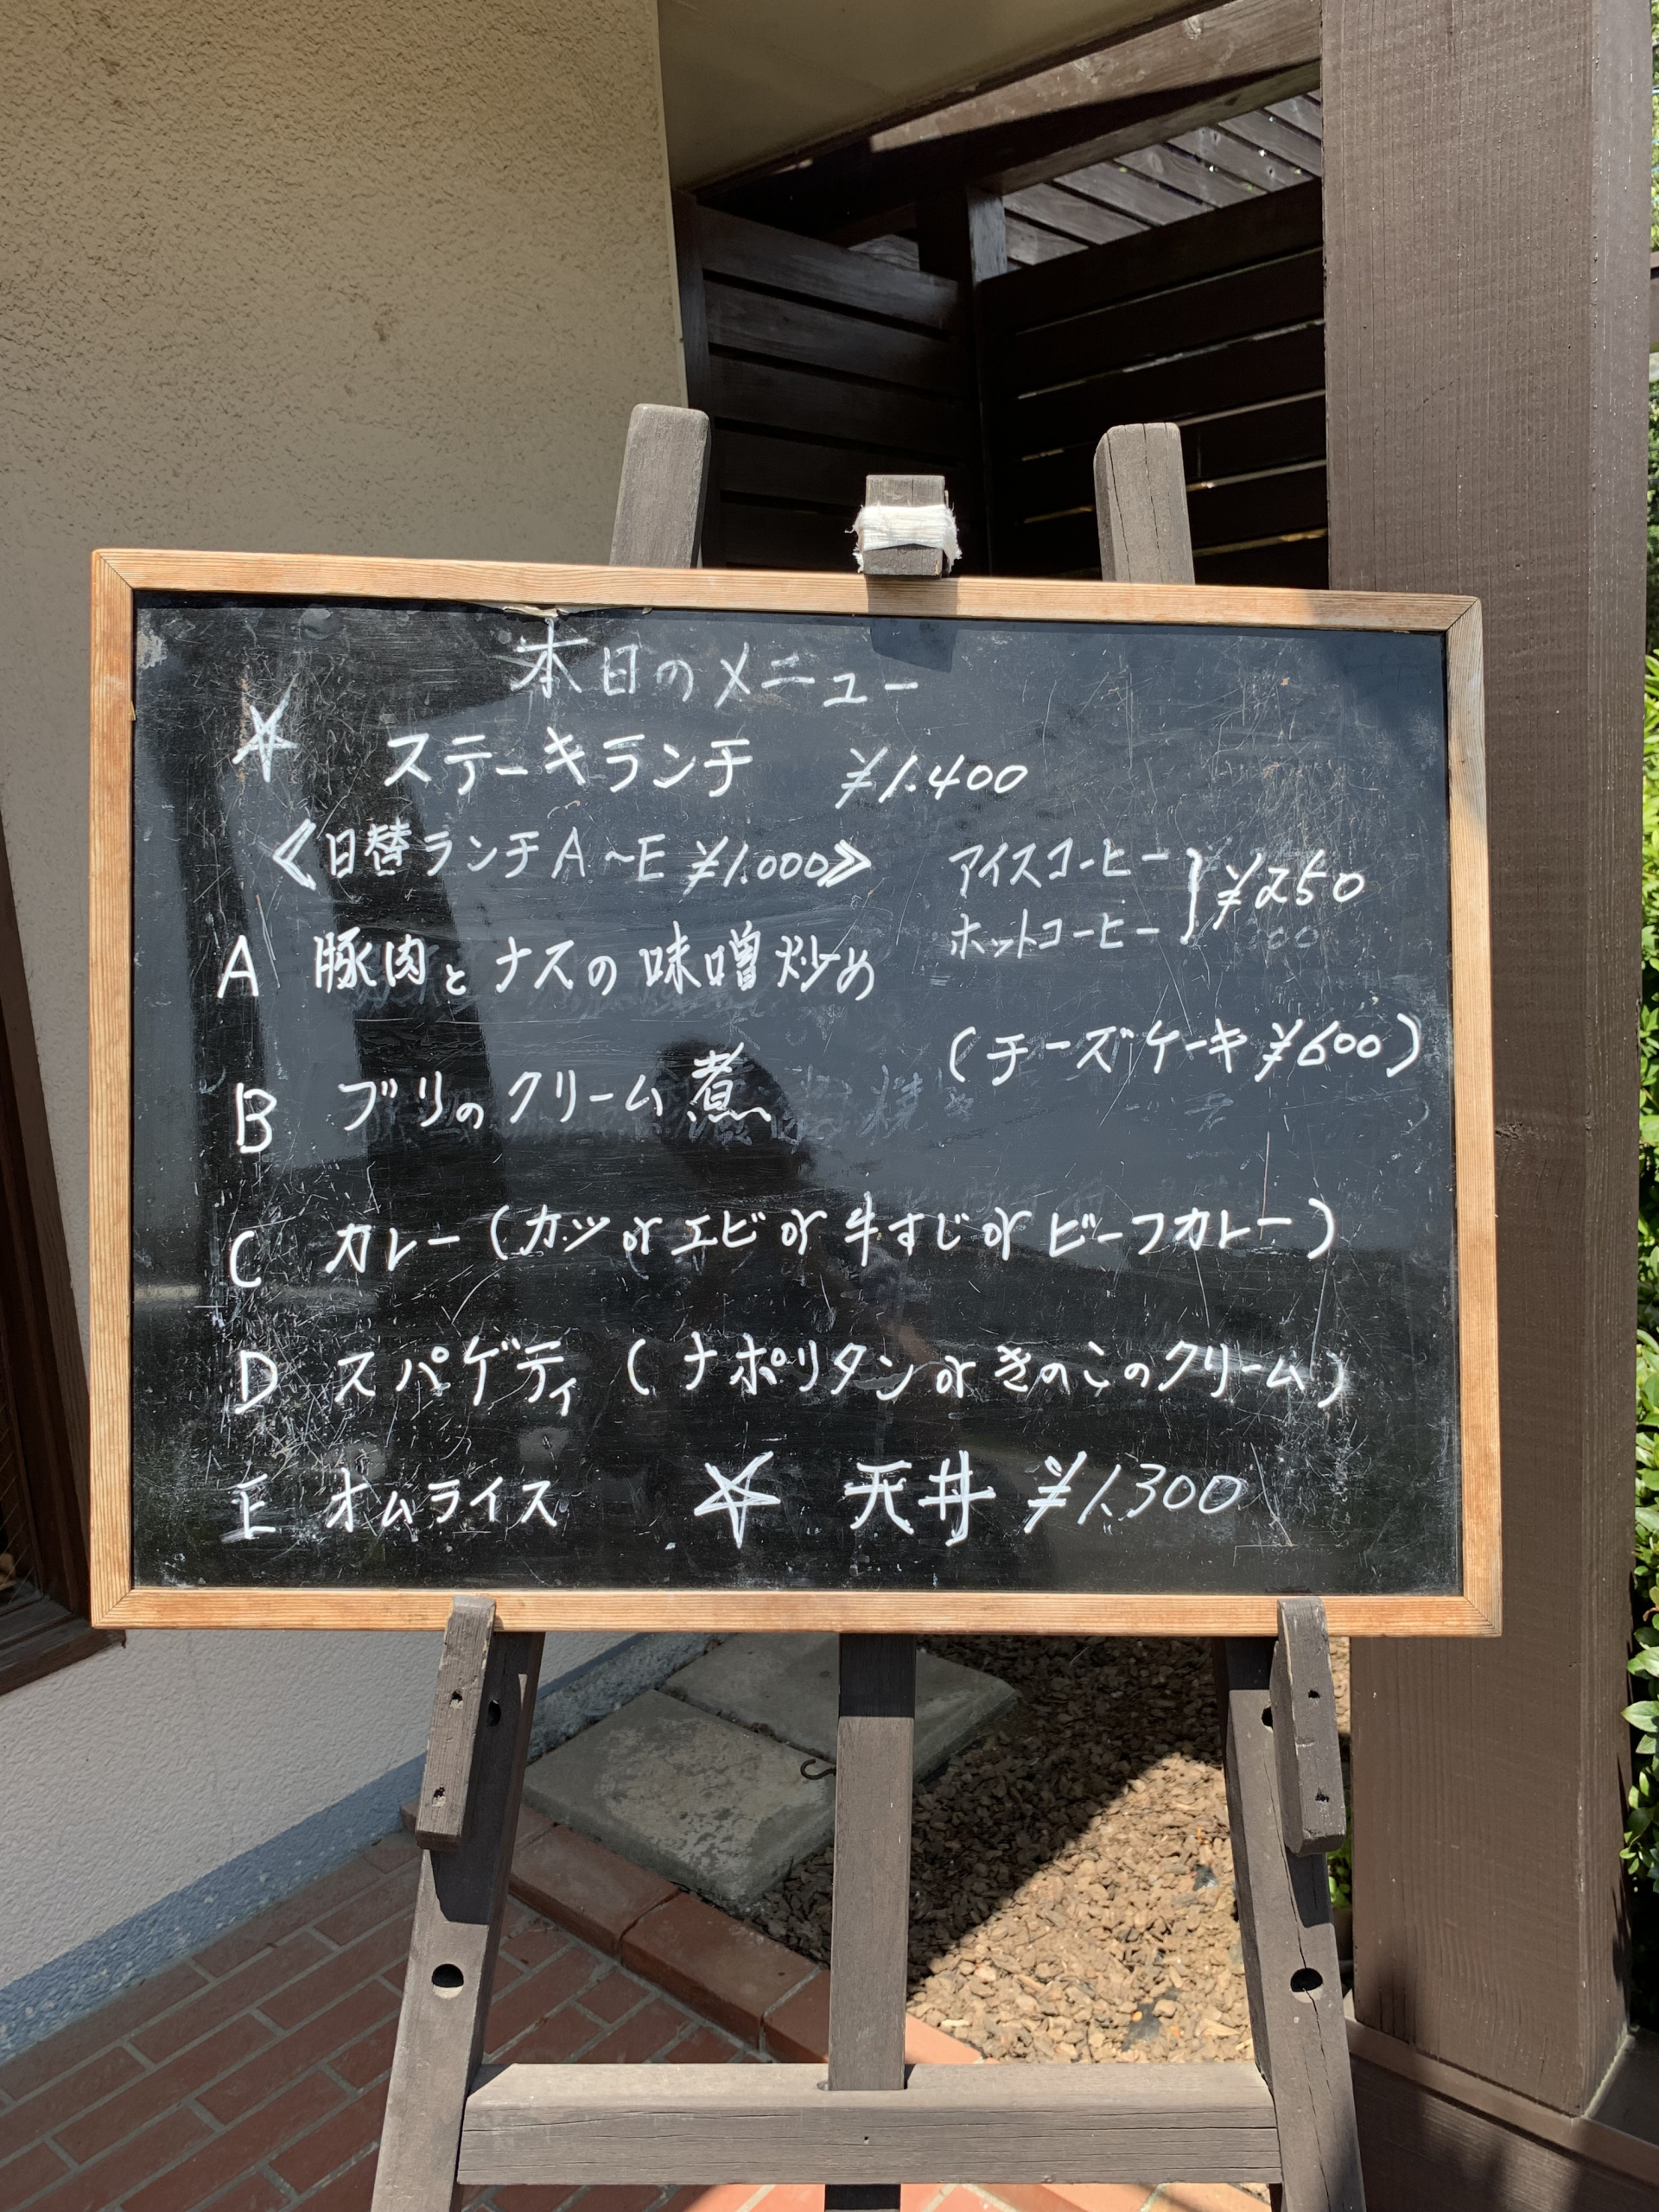 本日のメニュー
☆ ステーキランチ ¥1.400
《日替ランチ A～E ¥1.000》
アイスコーヒー
ホットコーヒー } ¥250
A 豚肉とナスの味噌炒め
(チーズケーキ ¥600)
B ブリのクリーム煮
C カレー (カツ or エビ or 牛すじ or ビーフカレー)
D スパゲティ (ナポリタン or きのこのクリーム)
E オムライス ☆ 天丼 ¥1.300